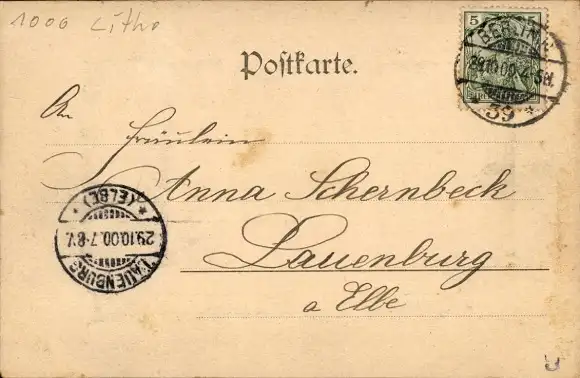 1000 Litho
5 5
BERLIN N.
29.10.00.4-5N.
39 *
Postkarte.
An
Fräulein
Anna Schernbeck
Lauenburg
a Elbe
LAUENBURG
29.10.00.7-8V.
* (ELBE) *